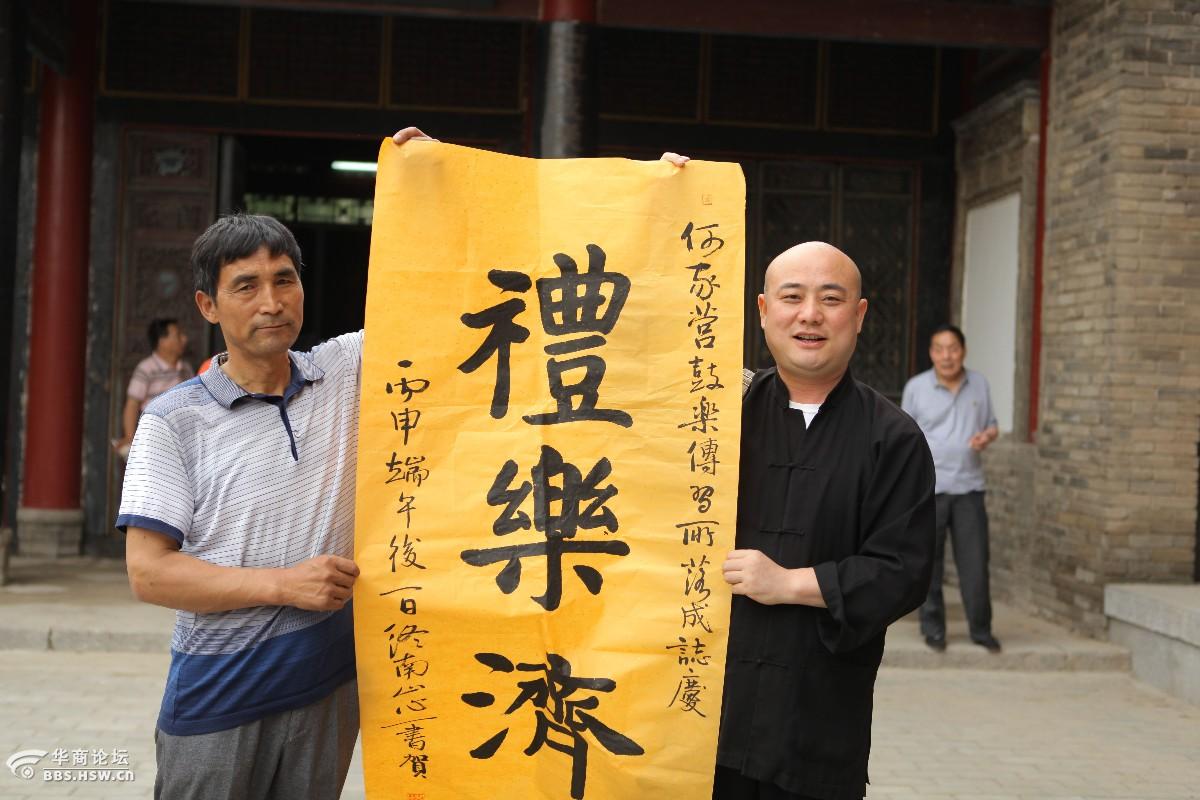 何家营鼓楽傳習所落成誌慶
禮樂濟
丙申端午後一日終南山心一書賀
华商论坛
BBS.HSW.CN